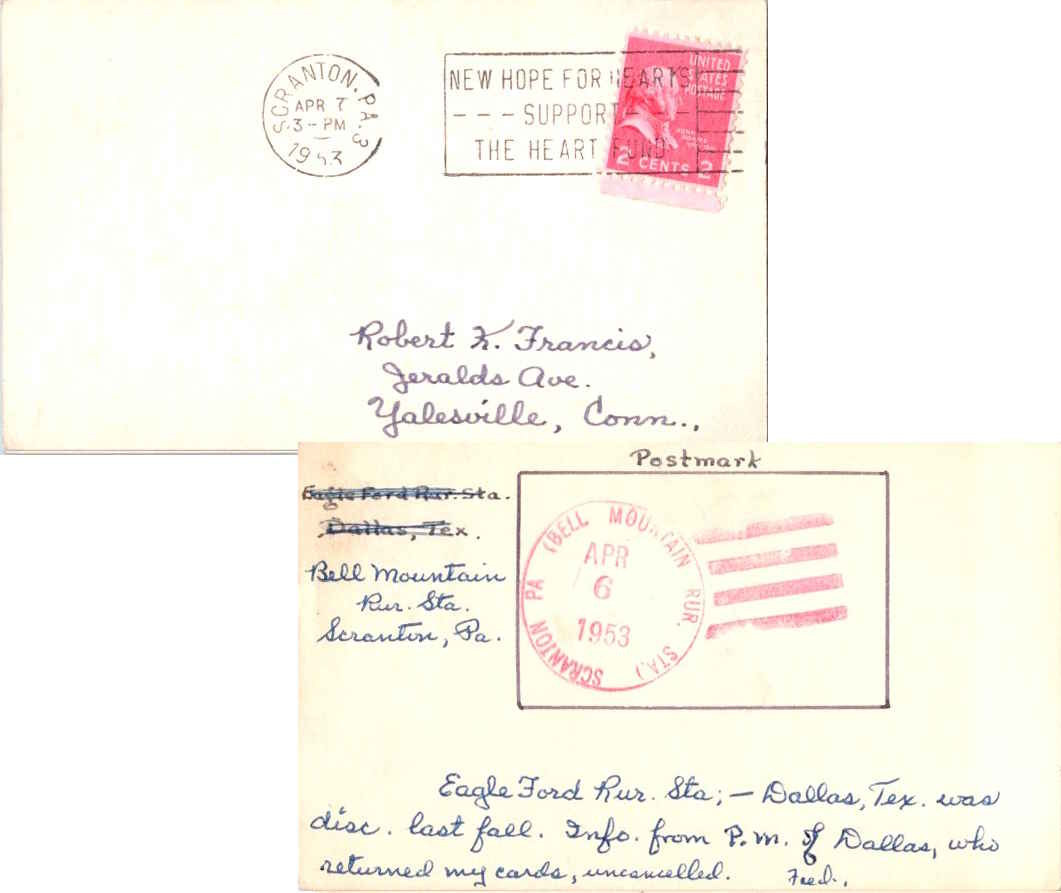 SCRANTON, PA. 3
APR 7
3 - PM
1953
NEW HOPE FOR HEARTS
- - - SUPPORT - - -
THE HEART FUND
UNITED
STATES
POSTAGE
2 CENTS 2
Robert K. Francis,
Jeralds Ave.
Yalesville, Conn.,
Postmark
Eagle Ford Rur. Sta.
Dallas, Tex.
Bell Mountain
Rur. Sta.
Scranton, Pa.
SCRANTON PA (BELL MOUNTAIN RUR. STA.)
APR
6
1953
Eagle Ford Rur. Sta; — Dallas, Tex. was
disc. last fall. Info. from P.M. of Dallas, who
returned my cards, uncancelled. Fred.,